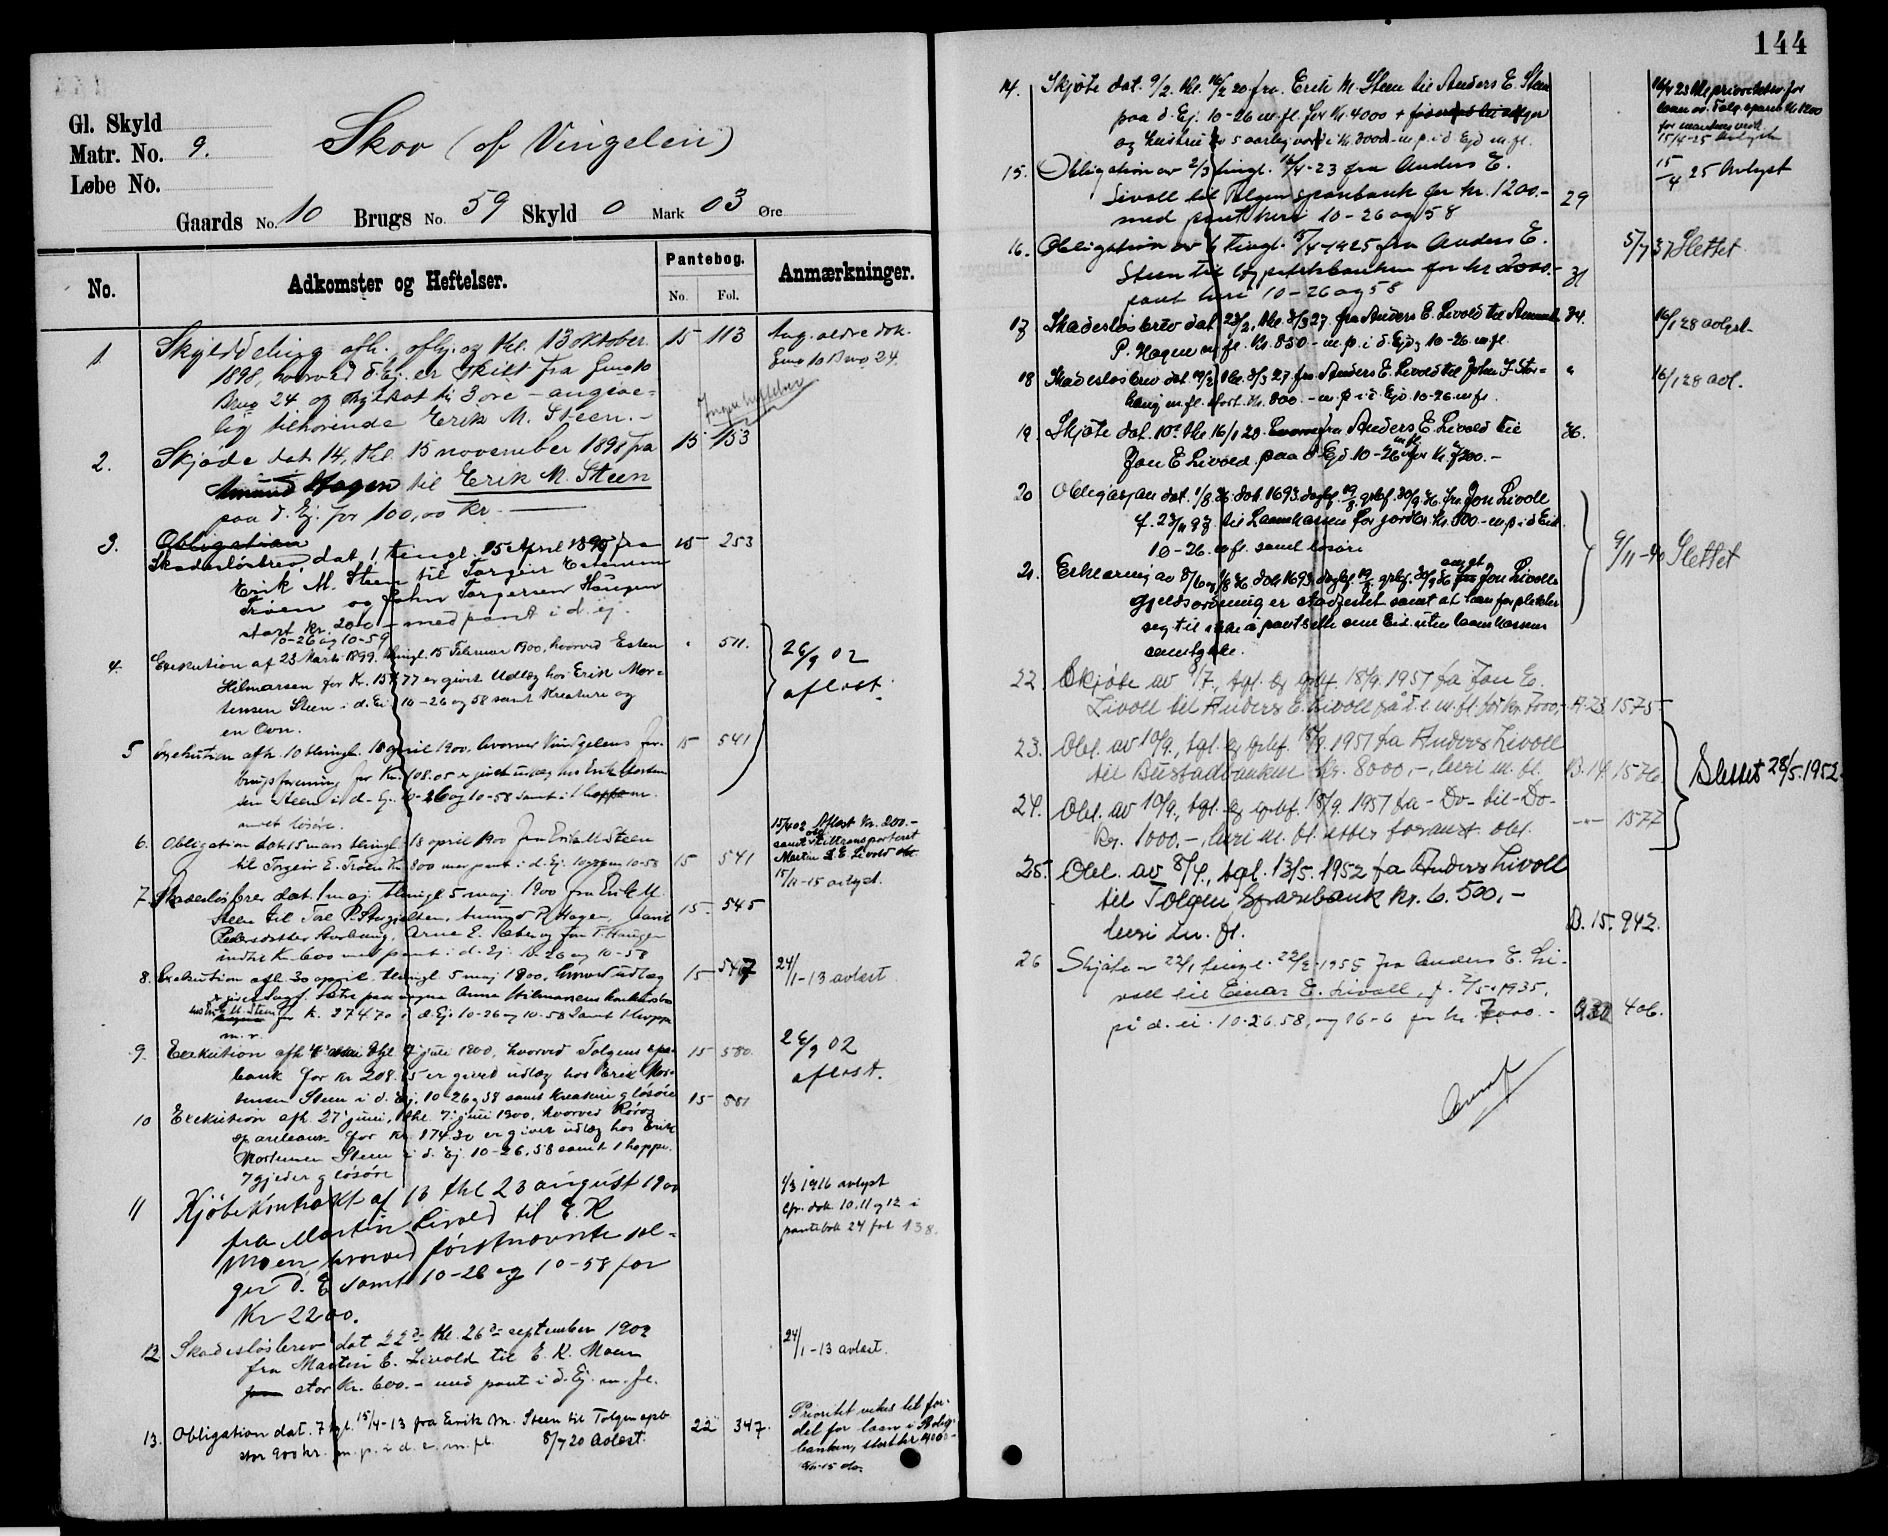 Gl. Skyld
Matr. No. 9.
Løbe No.
Skov (of Vingelen)
Gaards No. 10 Brugs No. 59 Skyld 0 Mark 03 Øre
No.
Adkomster og Heftelser.
Pantebog.
No. Fol.
Anmærkninger.
1 Skylddeling afh., oflj. og thl. 13 oktober 15 113
1898, hvorved d. Ej. er skilt fra Gno 10
Bno 24 og skyldsat til 3 øre - angive-
lig tilhørende Erik M. Steen. -
Ang. ældre dok.
Gno 10 Bno 24.
Ingen heftelser
2. Skjøde dat 14, thl. 15 november 1898 fra 15 153
Amund Hagen til Erik M. Steen
paa d. Ej. for 100,00 Kr
3. Obligation
Skadesløsbrev dat. 1 tingl. 15 April 1899 fra 15 253
Erik M. Steen til Torgeir Estensen
Troen og John Torgersen Haugen
stort Kr. 200 - med pant i d. ej.
10-26 og 10-59
4. Exekution af 23 Marts 1899, thingl. 15 Februar 1900, hvorved Esten " 511.
Hilmarsen for Kr. 157.77 er givet Udlæg hos Erik Mor-
tensen Steen i d. Ei. 10-26 og 58 samt Kreature og
en Ovn.
26/9 02
aflæst.
5 Exekution afh. 10 thingl. 18 april 1900, hvorved Vingelens for- 15 541
brugsforening for Kr. 108.05 er givet udlæg hos Erik Morten
sen Steen i d. Ej. 10-26 og 10-58 samt 1 hoppe m.
m et løsøre.
6. Obligation dat 15 mars thingl. 18 april 1900 fra Erik M Steen
til Torgeir E. Troen Kr. 800 mer pant i d. Ej. 10-26 og 10-58 15 541
15/4 02 Aflæst Kr. 200.-
samt obl. transporteret
Martin E. Livold
15/11-15 avlyst.
7. Skadesløsbrev dat. 1 maj thingl. 5 maj 1900 fra Erik M.
Steen til Tol P. Aug, Amund P. Hagen, samt 15. 545
Pedersdatter, Arne E. og Jon T. Haugen
indtil Kr. 600 med pant i d. Ej. 10-26 og 10-58
8. Exekution afh. 30 april thingl. 5 maj 1900, hvorved udlæg 15 547
er givet Sagf. Sætre paa vegne Anna Hilmarsens konkursbo
hos Erik M. Steen for K. 274.70 i d. Ej. 10-26 og 10-58 samt 1 hoppe
m. v.
24/1-13 avlæst
9. Exekution afh. thl. 7 juni 1900, hvorved Tolgens spa- 15 580.
bank for Kr 208.15 er givet udlæg hos Erik Mor-
tensen Steen i d. Ej. 10-26 og 58 samt kreature og løsøre
26/9 02
aflæst.
10 Exekution afh. 27 juni, thl. 7 juni 1900, hvorved Røros 15 581
sparebank for Kr. 174.30 er givet udlæg hos Erik
Mortensen Steen i d. Ej. 10-26, 58 samt 1 hoppe.
7 gjeder og løsøre
11 Kjøbekontrakt af 13 thl 23 august 1900
fra Martin Livold til E. K
Moen, hvorved førstnævnte sæl-
ger d. E. samt 10-26 og 10-58 for
Kr 2200.
4/3 1916 avlyst
cfr. dok. 10. 11 og 12 i
pantebok 24 fol 138.
12 Skadesløsbrev dat 22de thl. 26de september 1902
fra Martin E. Livold til E. K. Moen
stor Kr. 600.- med pant i d. Ej. m. fl.
24/1-13 avlæst.
13. Obligation dat. 7 tgl. 15/4-13 fra Erik M. Steen til Tolgen spb. 22 347.
stor 900 kr. m. p. i d. e. m. fl. 8/7 20 Avlæst.
Prioritet vikes til for-
del for laan i Bolig-
banken, stort kr 4000-
15 do.
144
14. Skjøte dat. 9/2. thl. 16/2 20 fra Erik M. Steen til Anders E. Steen
paa d. Ej. 10-26 m. fl. for Kr. 4000 +
og hustru for 5 aarlig værdi Kr. 3000.- m. p. i d. Ejd m. fl.
16/4 23 thl. prioritetsv. for
laan av Tolg. spareb. kr. 1200
15/4-25 Avlyst
15. Obligation av 2/3 tingl. 16/4-23 fra Anders E.
Livoll til Tolgen sparebank for kr. 1200.- 29
med pant heri 10-26 og 58
15/4 25 Avlyst
16. Obligation av 6 tingl. 15/4-1925 fra Anders E.
Steen til hypotekbanken for kr 2000.- 31
pant heri 10-26 og 58
5/7 37 Slettet
17 Skadesløsbrev dat. 23/2, thl. 3/3 27. fra Anders E. Livold til Amund 34.
P. Hagen m. fl. Kr. 850.- m. p. i d. Ejd 10-26 m. fl.
16/1 28 avlyst.
18 Skadesløsbrev dat. 19/2, thl. 3/3 27 fra Anders E. Livold til John J. Stor- "
haug m. fl. stort Kr. 800.- m. p. i d. Ejd. 10-26 m fl.
16/1 28 avl.
19 Skjøte dat. 10de thl. 16/1 28 fra Anders E. Livold til 36.
Jon E Livold paa d Ejd. 10-26 m. fl. for Kr. 7300.-
20 Obligasjon dat. 1/8 36 dok 1693 dagbf. 19/8 grbf. 30/9 36 fra Jon Livoll
f. 23/11 97 til Laanekassen for jordbr. kr. 800.- m. p. i d Eid.
10-26. m fl. samt løsøre
21. Erklæring av 8/6 og 1/8 36 dok 1693 dagbf. 19/8 grbf. 30/9 36 angt. Jon Livolls
gjeldsordning er stadfestet samt at han forplikter
seg til ikke å pantsette sine Eid. uten laanekassens
samtykke.
9/11-40 Slettet
22. Skjøte av 9/7., tgl. og grbf. 18/9. 1951 fra Jon E.
Livoll til Anders E. Livoll på d. e m. fl. for kr. 7000,- A. 23. 1575
23. Obl. av 10/9., tgl. og grbf. 18/9. 1951 fra Anders Livoll
til Bustadbanken kr. 8000,-, heri m. fl. B. 14. 1576
24. Obl. av 10/9., tgl. og grbf. 18/9. 1951 fra -Do- til -Do-
Kr. 1000.-, heri m. fl. etter forannf. obl. -"- 1577
Slettet 28/5. 1952.
25. Obl. av 8/4., tgl. 13/5. 1952 fra Anders Livoll
til Tolgen Sparebank kr. 6.500,-
heri m. fl. B. 15. 942.
26 Skjøte av 22/1 tingl. 22/2-1955 fra Anders E. Li-
voll til Einar E. Livoll, f. 2/5-1935,
på d. ei. 10-26, 58, og 16-6 for kr. 7000.- A 30 406.